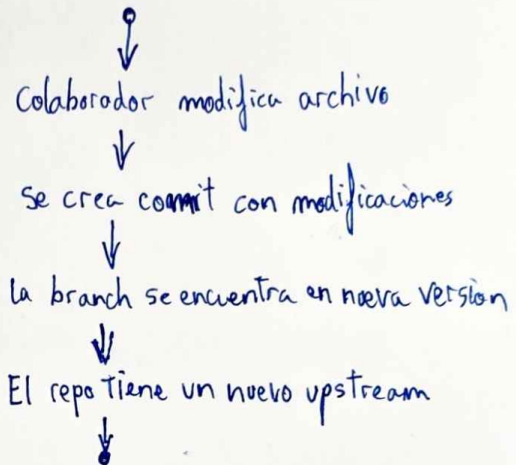 Colaborador modifica archivo
Se crea commit con modificaciones
La branch se encuentra en nueva version
El repo tiene un nuevo upstream